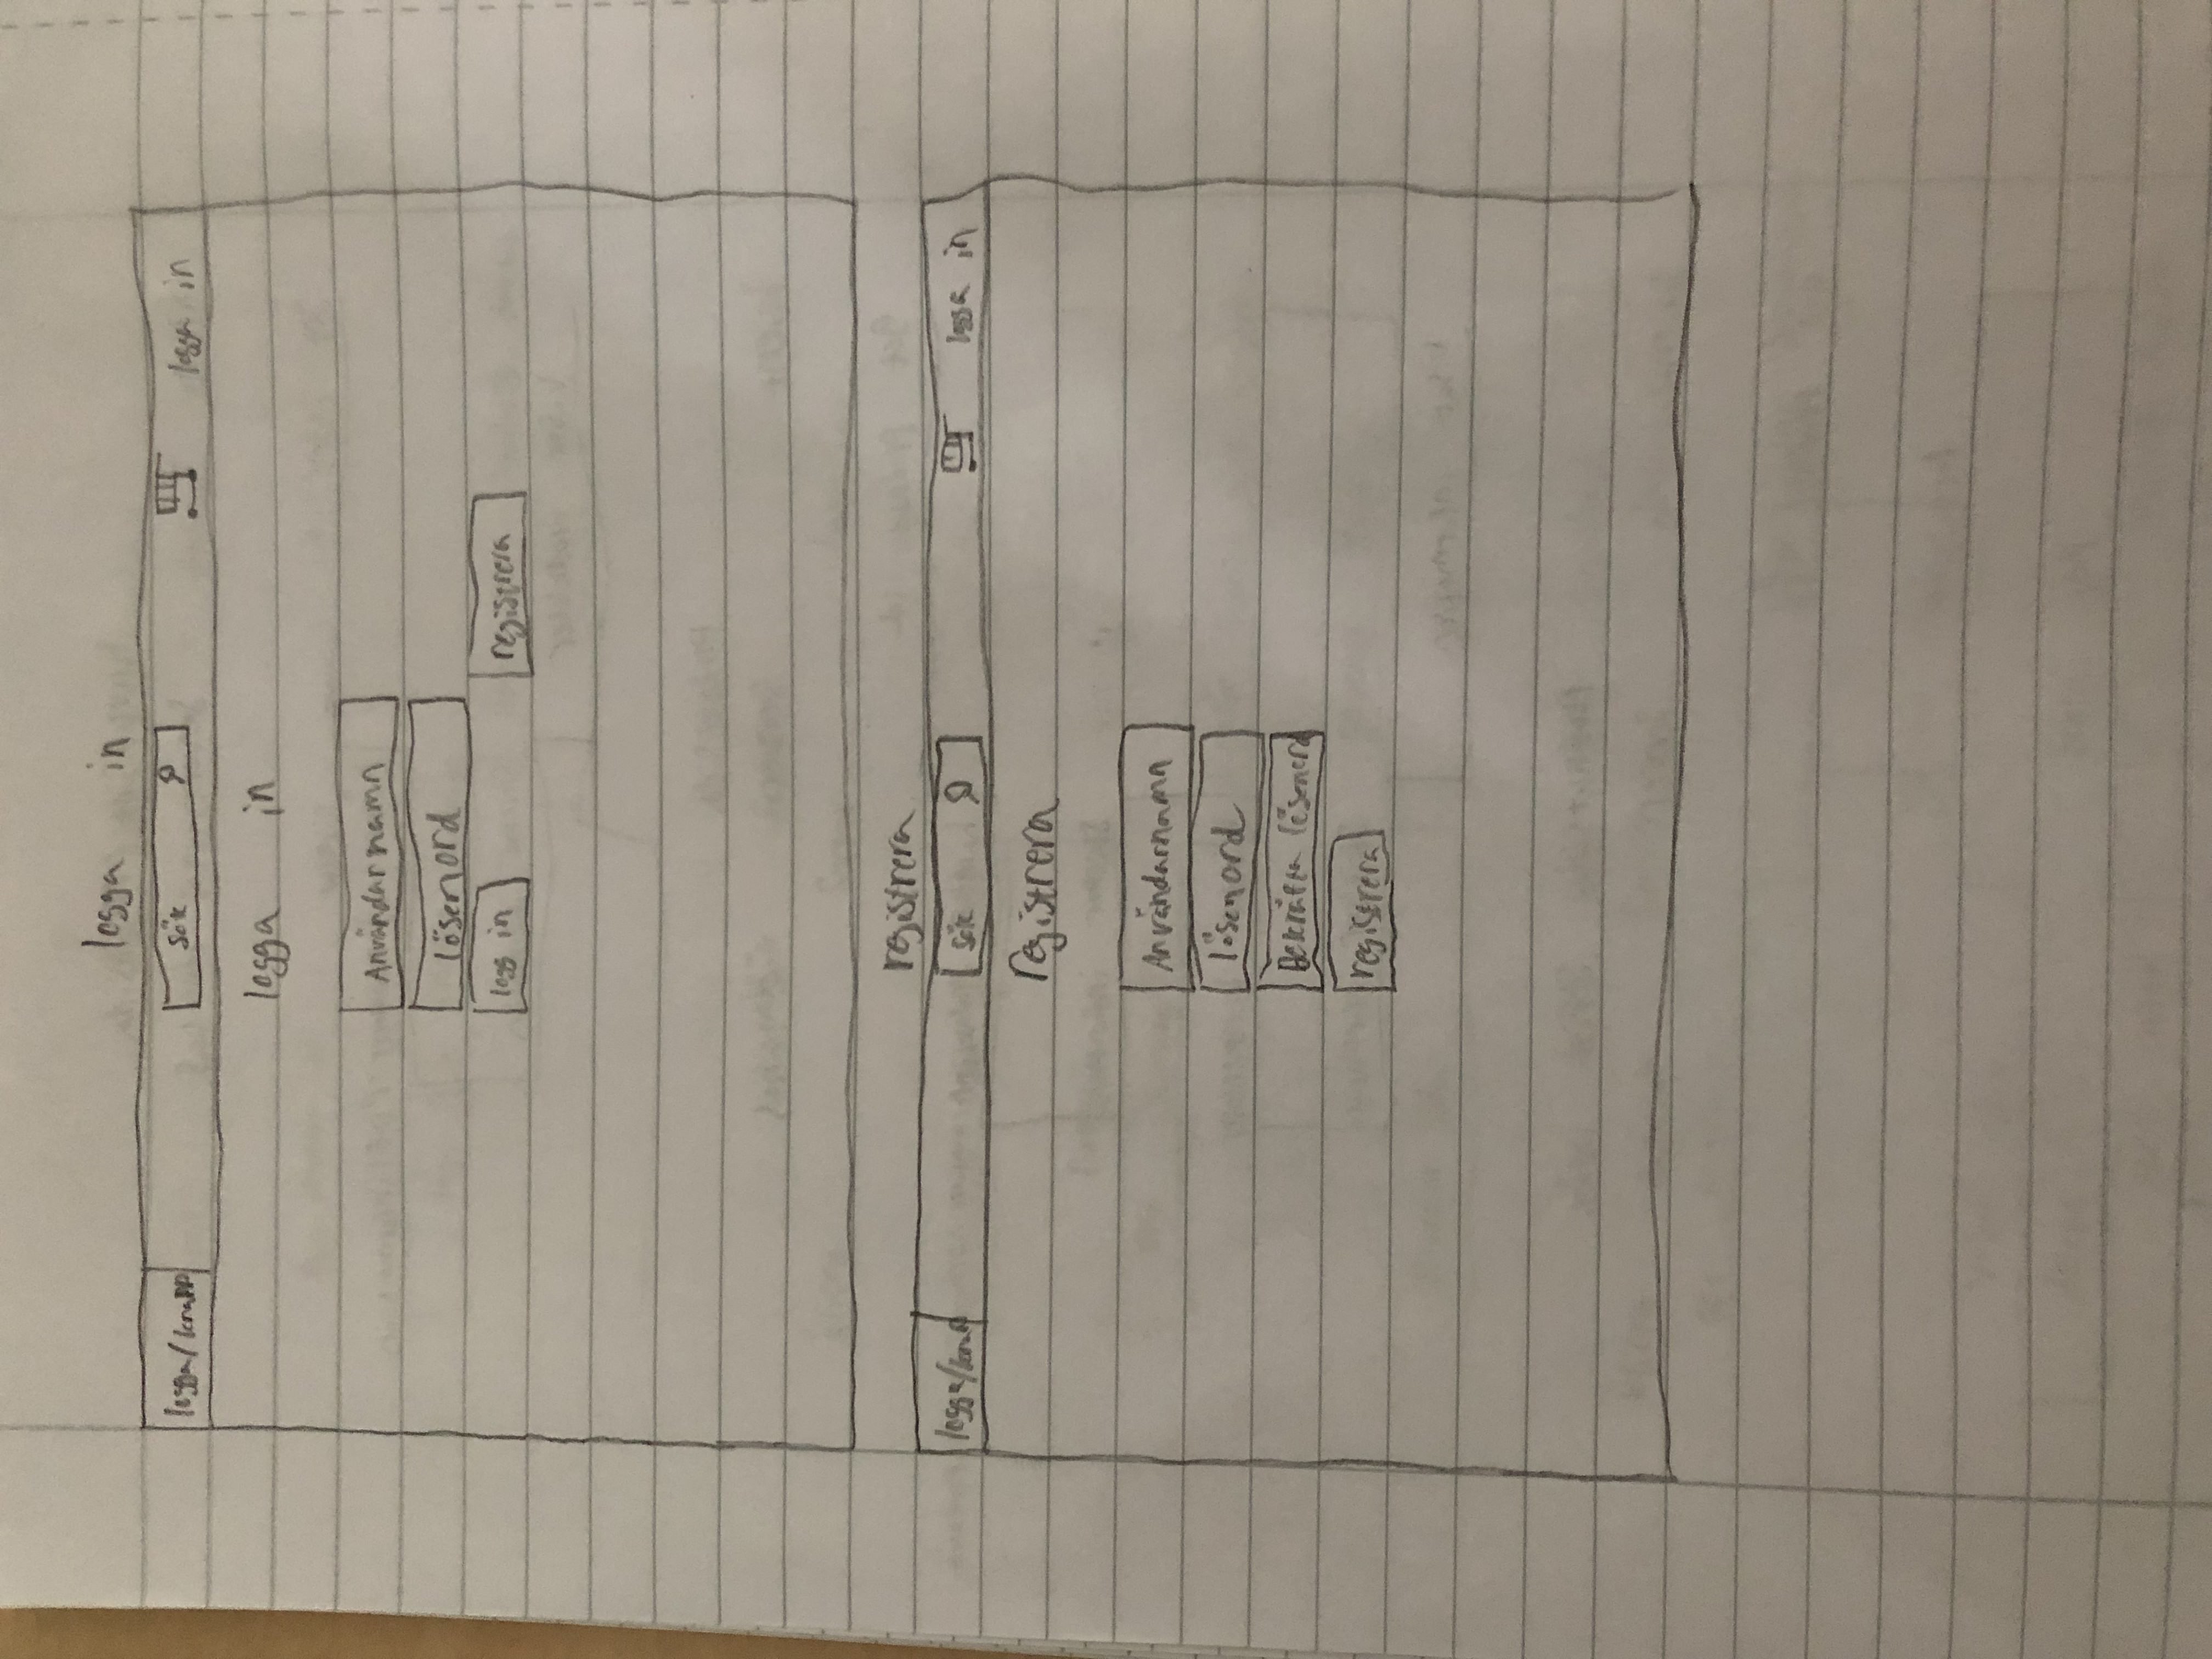 logga in
logga/knapp sök logga in
logga in
Användarnamn
lösenord
logg in registrera
registrera
logga/knapp sök logga in
registrera
Användarnamn
lösenord
Bekräfta lösenord
registrera